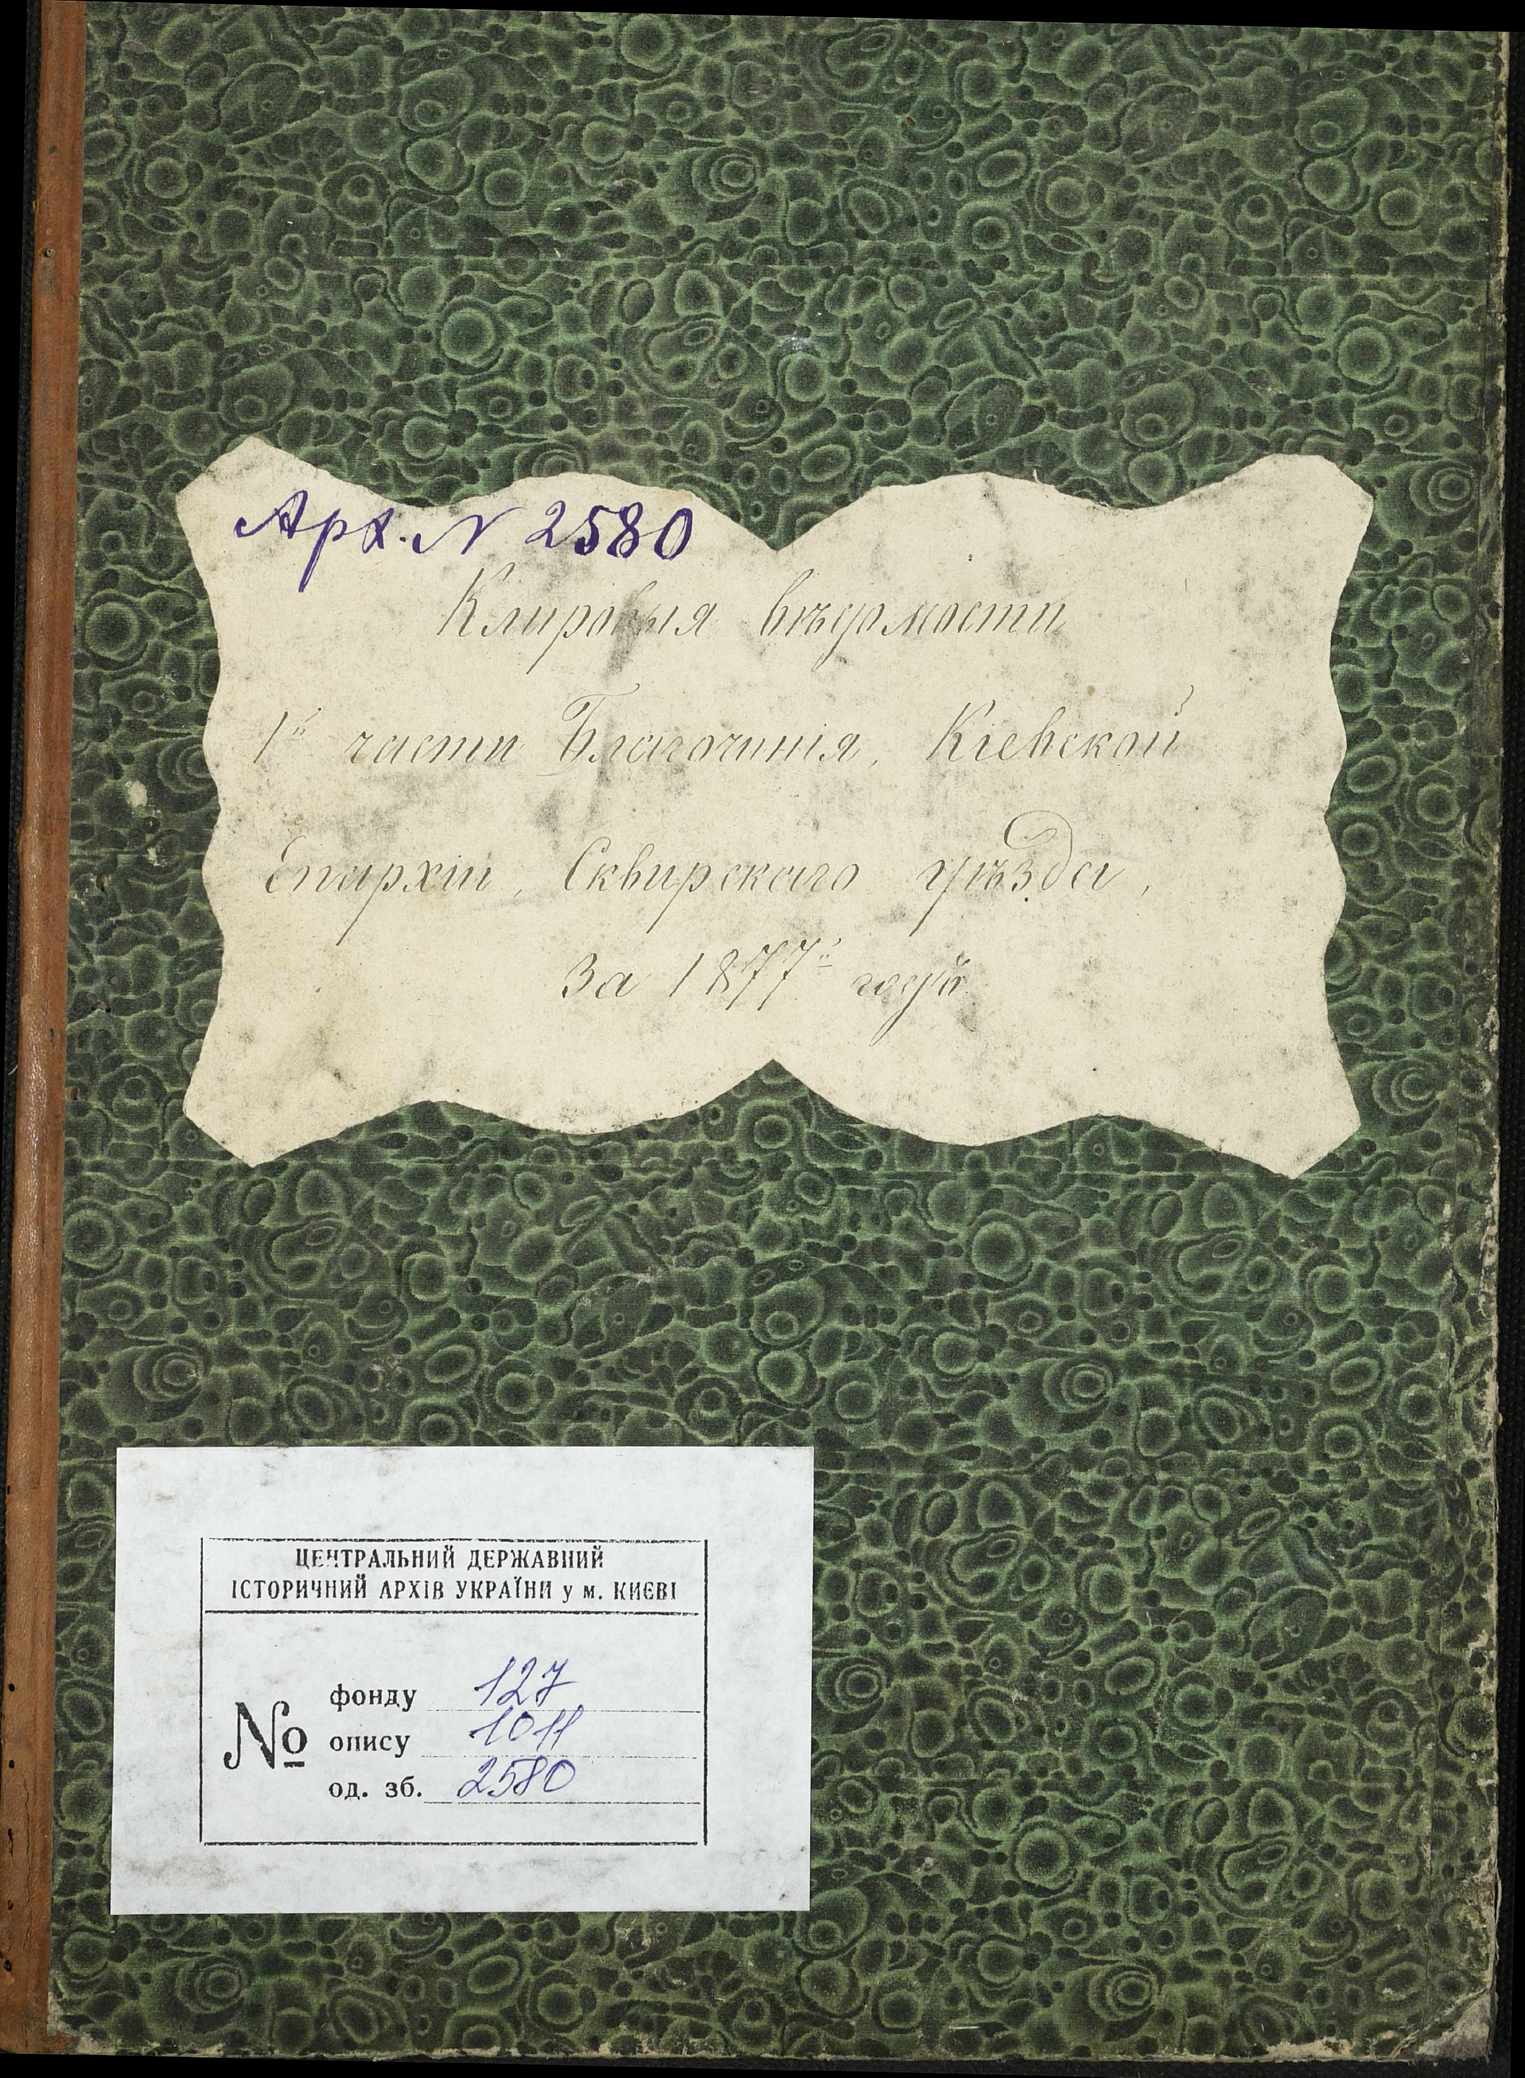 Арх. N 2580
Клировыя вѣдомости
1й части Благочинія, Кіевской
Епархіи, Сквирскаго уѣзда,
За 1877й годъ
ЦЕНТРАЛЬНИЙ ДЕРЖАВНИЙ
ІСТОРИЧНИЙ АРХІВ УКРАЇНИ у м. КИЄВІ
№
фонду 127
опису 1011
од. зб. 2580